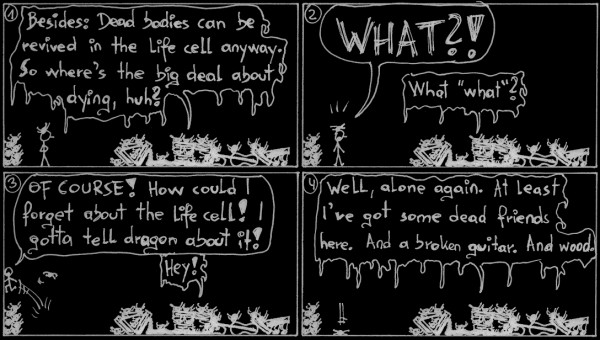 1
Besides: Dead bodies can be
revived in the Life cell anyway.
So where's the big deal about
dying, huh?
2
WHAT?!
What "what"?
3
OF COURSE! How could I
forget about the Life cell! I
gotta tell dragon about it!
Hey!
4
Well, alone again. At least
I've got some dead friends
here. And a broken guitar. And wood.